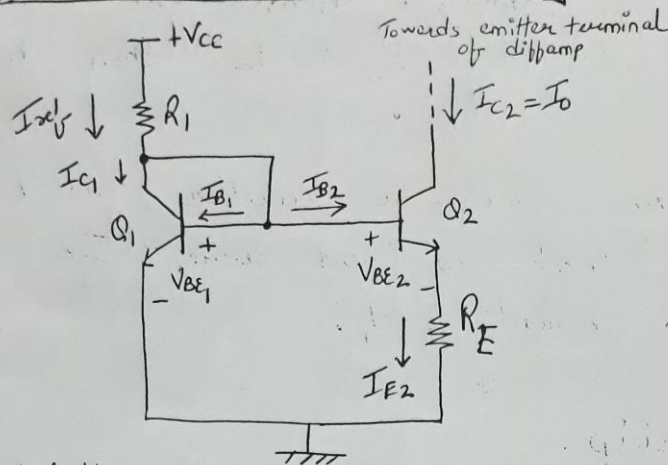 +VCC
Towards emitter terminal
of diffamp
Iref
R1
IC2 = I0
IC1
IB1
IB2
Q1
Q2
+
VBE1
-
+
VBE2
-
RE
IE2